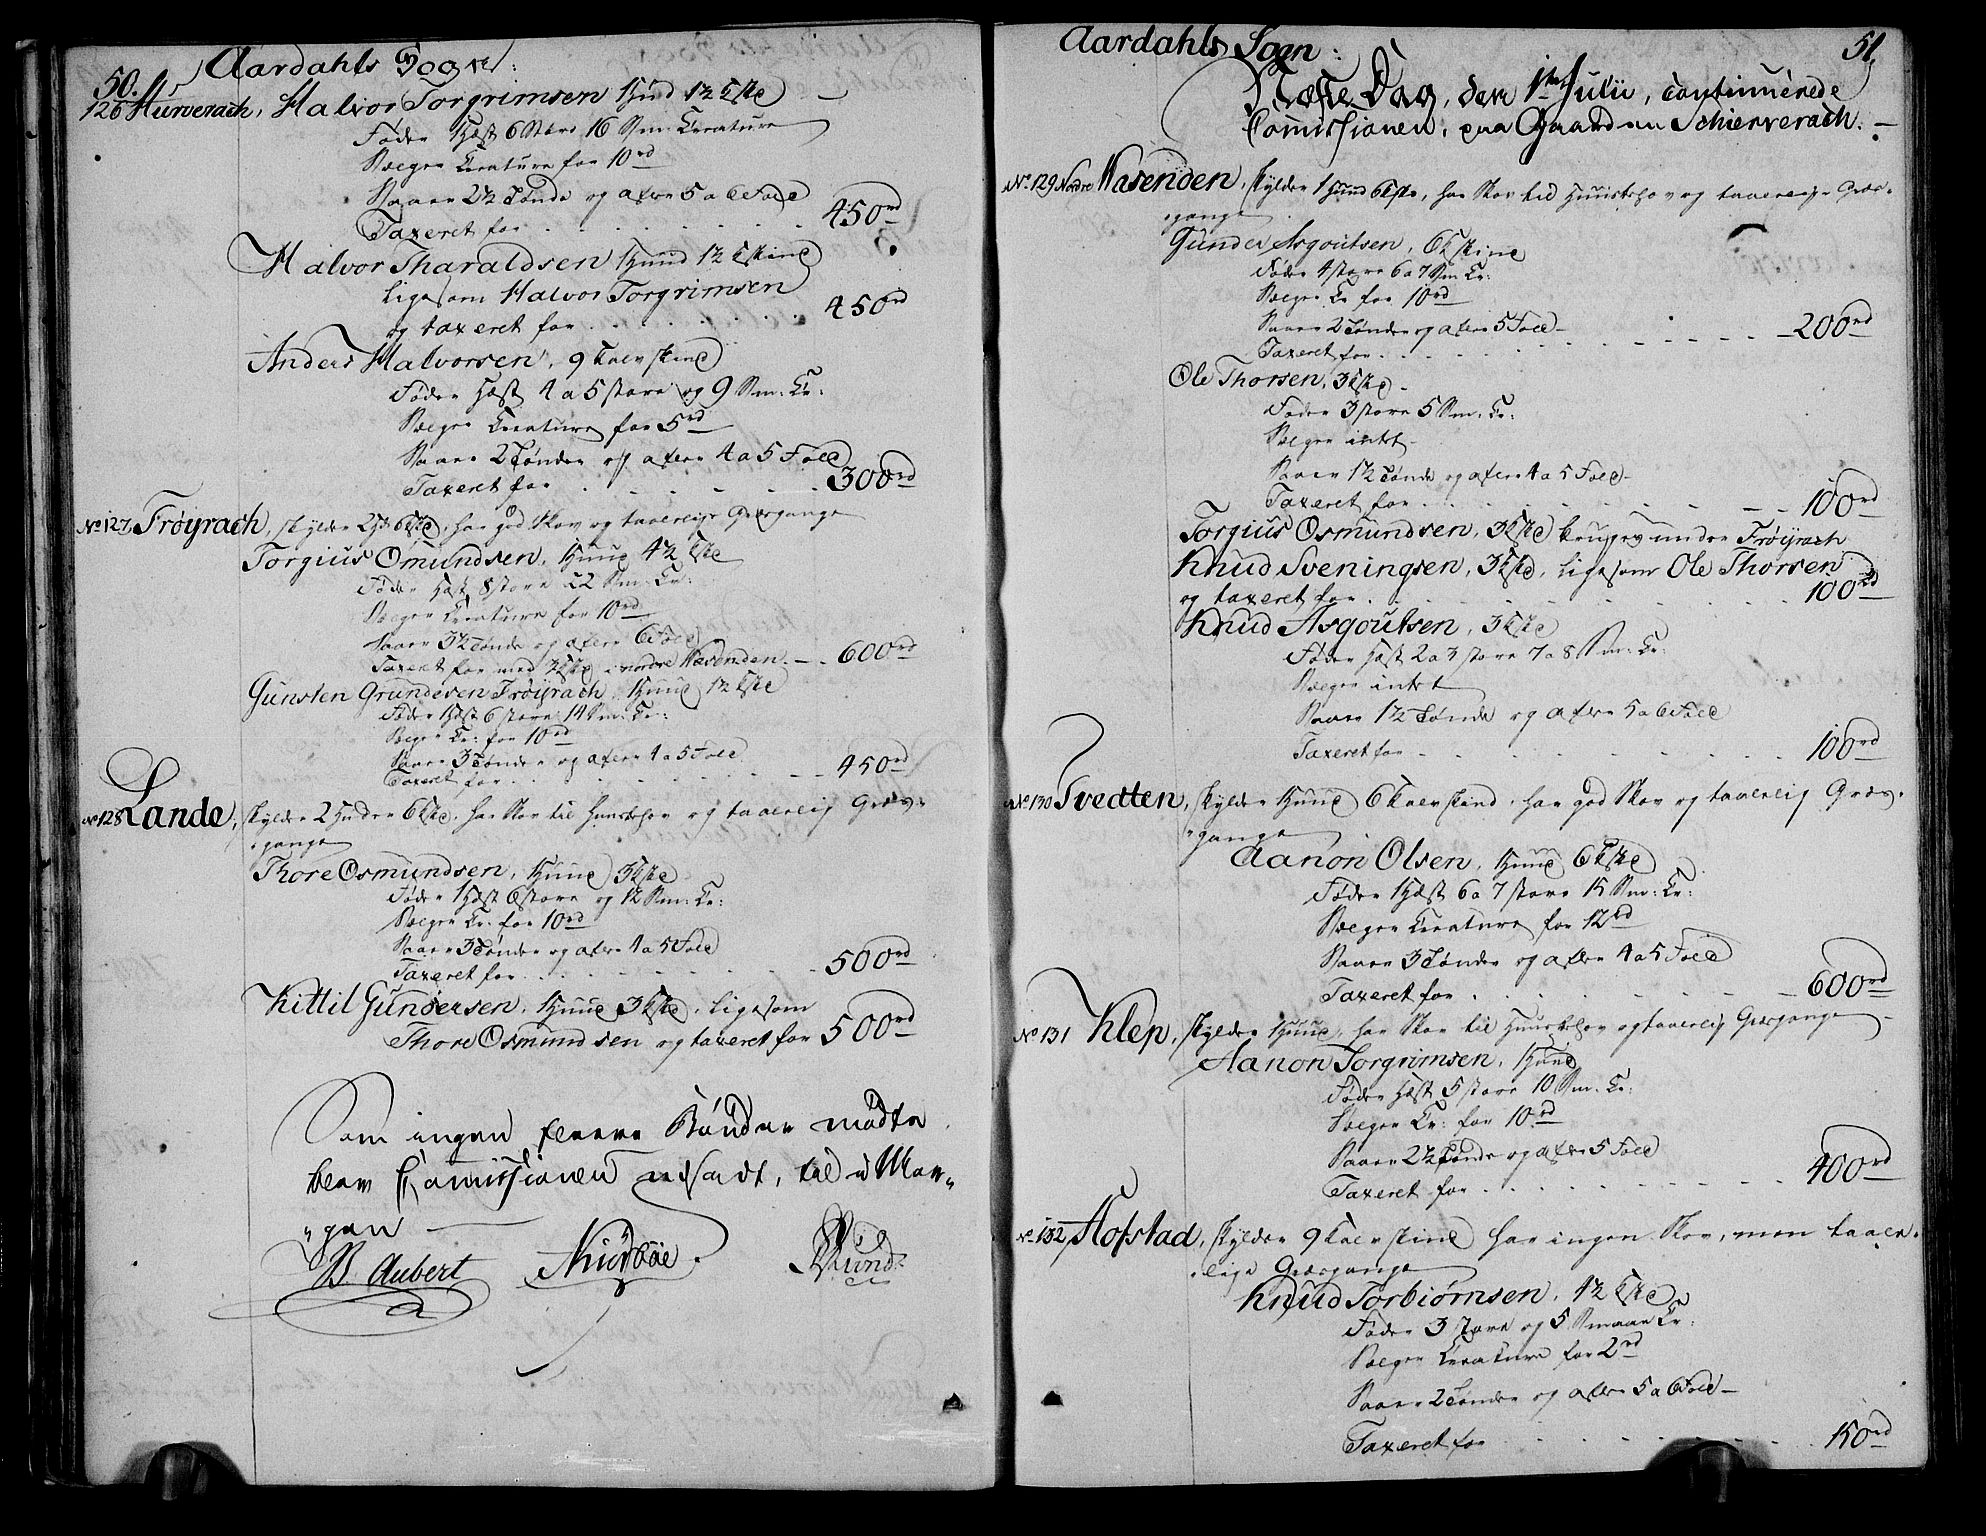 50.
Aardahls Sogn:
126 Hurverach, Halvor Torgrimsen 1 Hud 1½ Kskd
Føder 1 Hæst 6 Store 16 Sm: Creature
Sælger Creature for 10 rd
Saaer 2½ Tønde og avler 5 a 6 Fold
Taxeret for 450 rd
Halvor Tharaldsen 1 Huud 1½ Kskind
ligesom Halvor Torgrimsen
og taxeret for 450 rd
Anders Halvorsen, 9 Kalvskind
Føder 1 Hæst 4 a 5 store og 9 Sm: Cr:
Sælger Creature for 5 rd
Saaer 2 Tønder og avler 4 a 5 Fold
Taxeret for 300 rd
No 127 Frøyrach, skylder 2 Hd 6 Kskd, har god Skov og taalelige Græsgange
Torgius Omundsen, 1 Huud 4½ Kskd
Føder 1 Hæst 8 store 22 Sm: Cr:
Sælger Creature for 10 rd
Saaer 3½ Tønde og avler 6 Fold
Taxeret for med 3 Kskd i nordre Wasenden 600 rd
Gunsten Gundersen Frøyrach, 1 Huud 1½ Kskd
Føder 1 Hæst 6 store 14 Sm: Cr:
Sælger Cr: for 10 rd
Saaer 3 Tønder og avler 4 a 5 Fold
Taxeret for 450 rd
No 128 Lande, skylder 2 Huder 6 Kskd, har Skov til Huusbehov og taalelig Græs-
gange
Thore Osmundsen, 1 Huud 3 Kskd
Føder 1 Hæst 6 store og 12 Sm: Cr:
Sælger Cr: for 10 rd
Saaer 3 Tønder og avler 4 a 5 Fold
Taxeret for 500 rd
Kittil Gundersen, 1 Huud 3 Kskd, ligesom
Thore Osmundsen og taxeret for 500 rd
Som ingen fleere Bønder mødte
blev Commissionen udsadt, til i Mor-
gen
B. Aubert
Lund
51.
Aardahls Sogn:
Næste Dag, den 1ste Julii, continuerede
Commissionen, paa Gaarden Schierverach.
No 129 Nordre Wasenden, skylder 1 Huud 6 Kskd, har Skov til Huusbehov og taalelige Græs-
gange
Gunder Asgoutsen, 6 Kskind
Føder 4 store 6 a 7 Sm: Cr:
Sælger Cr for 10 rd
Saaer 2 Tønder og avler 5 Fold
Taxeret for 200 rd
Ole Thorsen, 3 Kskd
Føder 3 store 5 Sm: Cr:
Sælger intet
Saaer 1½ Tønde og avler 4 a 5 Fold
Taxeret for 100 rd
Torgius Osmundsen, 3 Kskd bruges under Frøyrach
Knud Sveningsen, 3 Kskd, ligesom Ole Thorsen
og taxeret for 100 rd
Knud Asgoutsen, 3 Kskd
Føder 1 Hæst 2 a 3 store 7 a 8 Sm: Cr:
Sælger intet
Saaer 1½ Tønde og avler 5 a 6 Fold
Taxeret for 100 rd
No 130 Tvedten, skylder 1 Huud 6 Kalvskind, har god Skov og taalelig Græs-
gange
Aanon Olsen, 1 Huud 6 Kskd
Føder 1 Hæst 6 a 7 store 15 Sm: Cr:
Sælger Creature for 12 rd
Saaer 3 Tønder og avler 4 a 5 Fold
Taxeret for 600 rd
No 131 Klep, skylder 1 Huud, har Skov til Huusbehov og taalelig Græsgange
Aanon Torgrimsen, 1 Huud
Føder 1 Hæst 5 store 10 Sm: Cr:
Sælger Cr: for 10 rd
Saaer 2½ Tønde og avler 5 Fold
Taxeret for 400 rd
No 132 Hofstad, skylder 9 Kalvskind har ingen Skov, men taale-
lige Græsgange
Knud Torbiørnsen, 4½ Kskd
Føder 3 store og 5 Smaae Cr:
Sælger Creature for 2 rd
Saaer 2 Tønder og avler 5 a 6 Fold
Taxeret for 150 rd